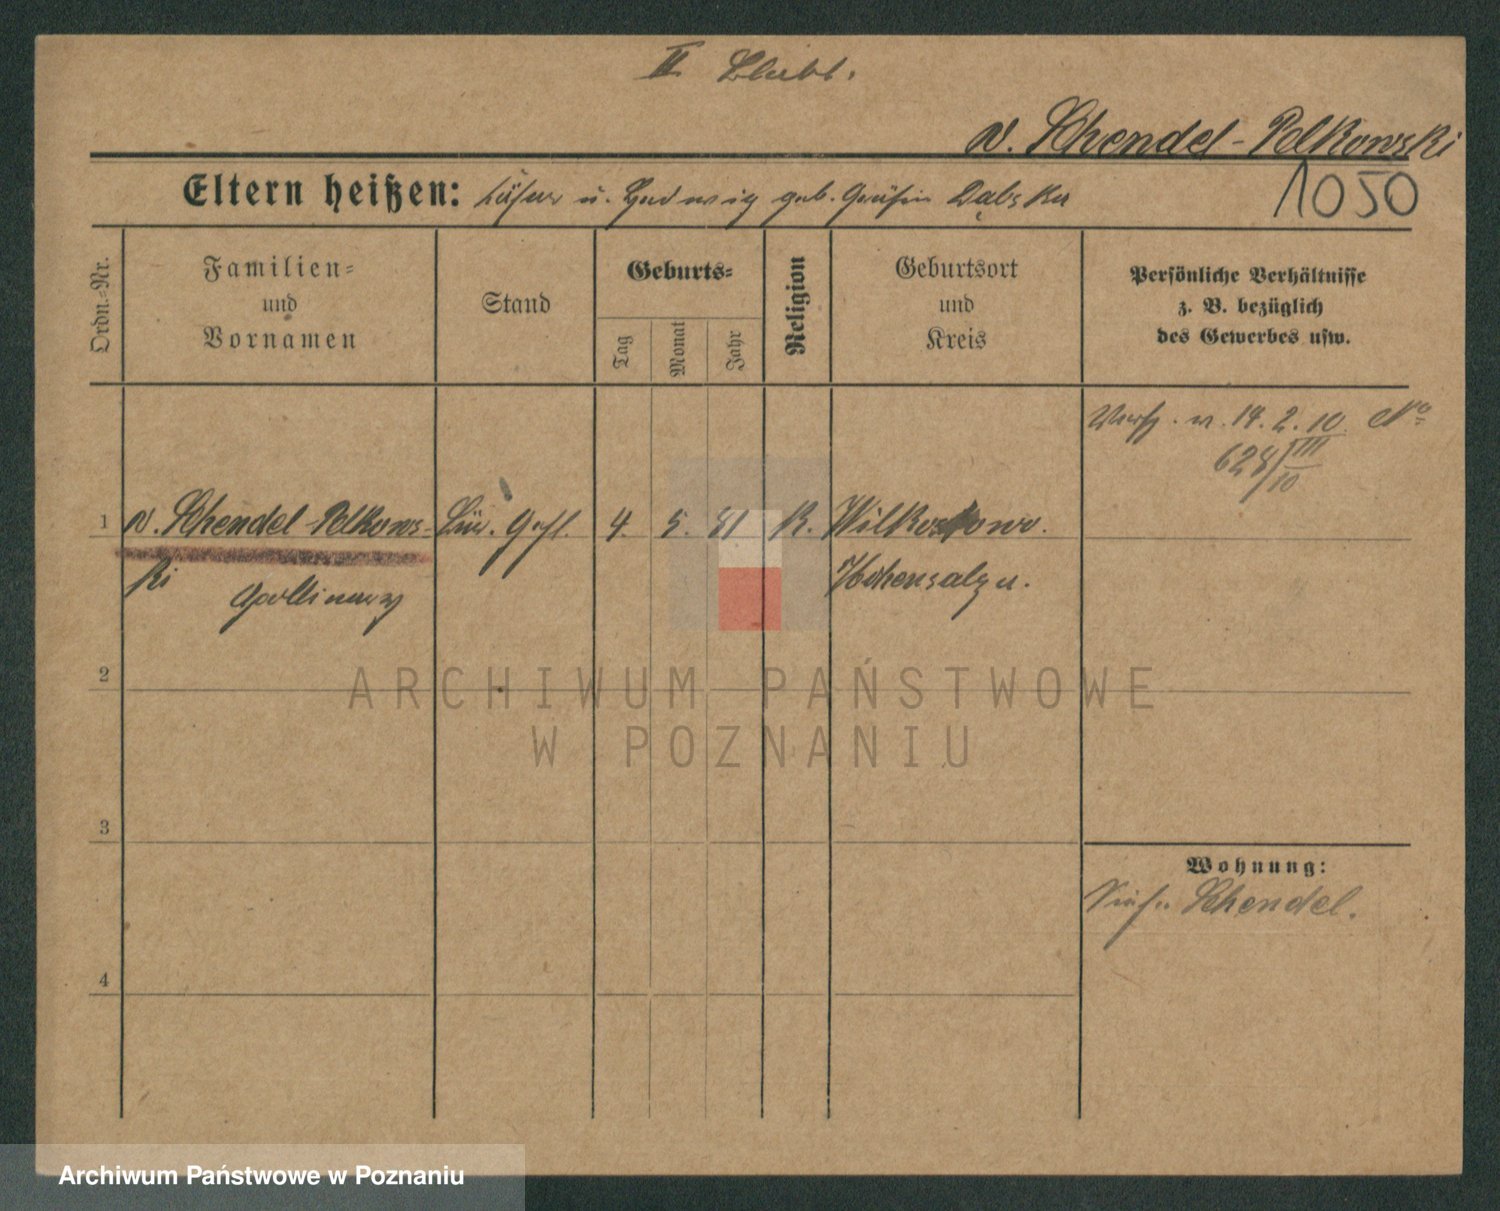 II Blatt.
v. Schendel-Pelkowski
1050
Eltern heißen: Cäsar u. Hedwig geb. Gräfin Dąbska
Ordn.-Nr.
Familien- und Vornamen
Stand
Geburts-
Tag
Monat
Jahr
Religion
Geburtsort und Kreis
Persönliche Verhältnisse
z. B. bezüglich
des Gewerbes usw.
v. 14.2.10. No
628/III/10
1 v. Schendel-Pelkows- 4. 5. 81 K. Wilkostowo.
ki Apollinary Hohensalza.
2
3
Wohnung:
Schendel.
4
ARCHIWUM PAŃSTWOWE
W POZNANIU
Archiwum Państwowe w Poznaniu